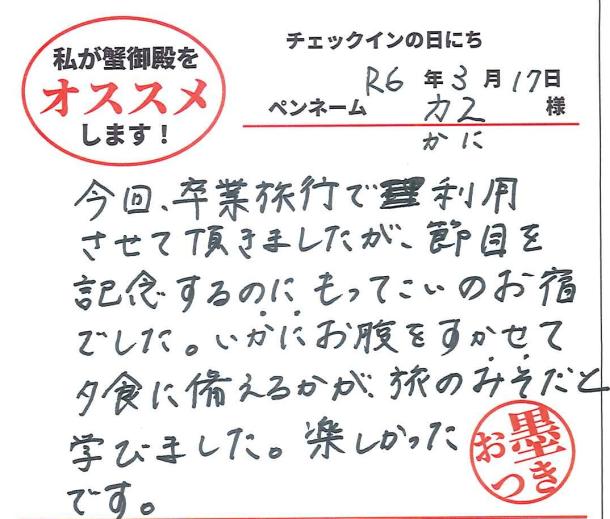 私が蟹御殿を
オススメ
します！
チェックインの日にち
R6年3月17日
ペンネーム カニ 様
かに
今回、卒業旅行で利用
させて頂きましたが、節目を
記念するのにもってこいのお宿
でした。いかにお腹をすかせて
夕食に備えるかが、旅のみそだと
学びました。楽しかった
です。
お墨つき